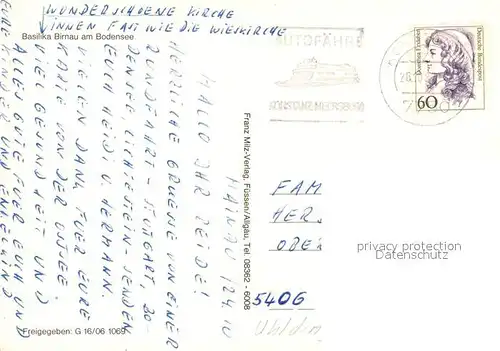 WUNDERSCHOENE KIRCHE
INNEN FAST WIE DIE WIESKIRCHE
Basilika Birnau am Bodensee
AUTOFÄHRE
KONSTANZ-MEERSBURG
60
Deutsche Bundespost
MAINAU
HALLO IHR BEIDE!
HERZLICHE GRUESSE VON EINER
RUNDFAHRT - STUTTGART, BO-
DENSEE, LICHTENSTEIN - SENDEN
EUCH HEIDI U. HERMANN.
VIELEN DANK FUER EURE
KARTE VON DER OSTSEE.
VIEL GESUNDHEIT UND
ALLES GUTE FUER EUCH UND
EURE KINDER UND ENKELKIND
Franz Milz-Verlag, Füssen/Allgäu, Tel. 08362 - 6008
FAM
HER
ODER
5406
privacy protection
Datenschutz
Freigegeben: G 16/06 1069